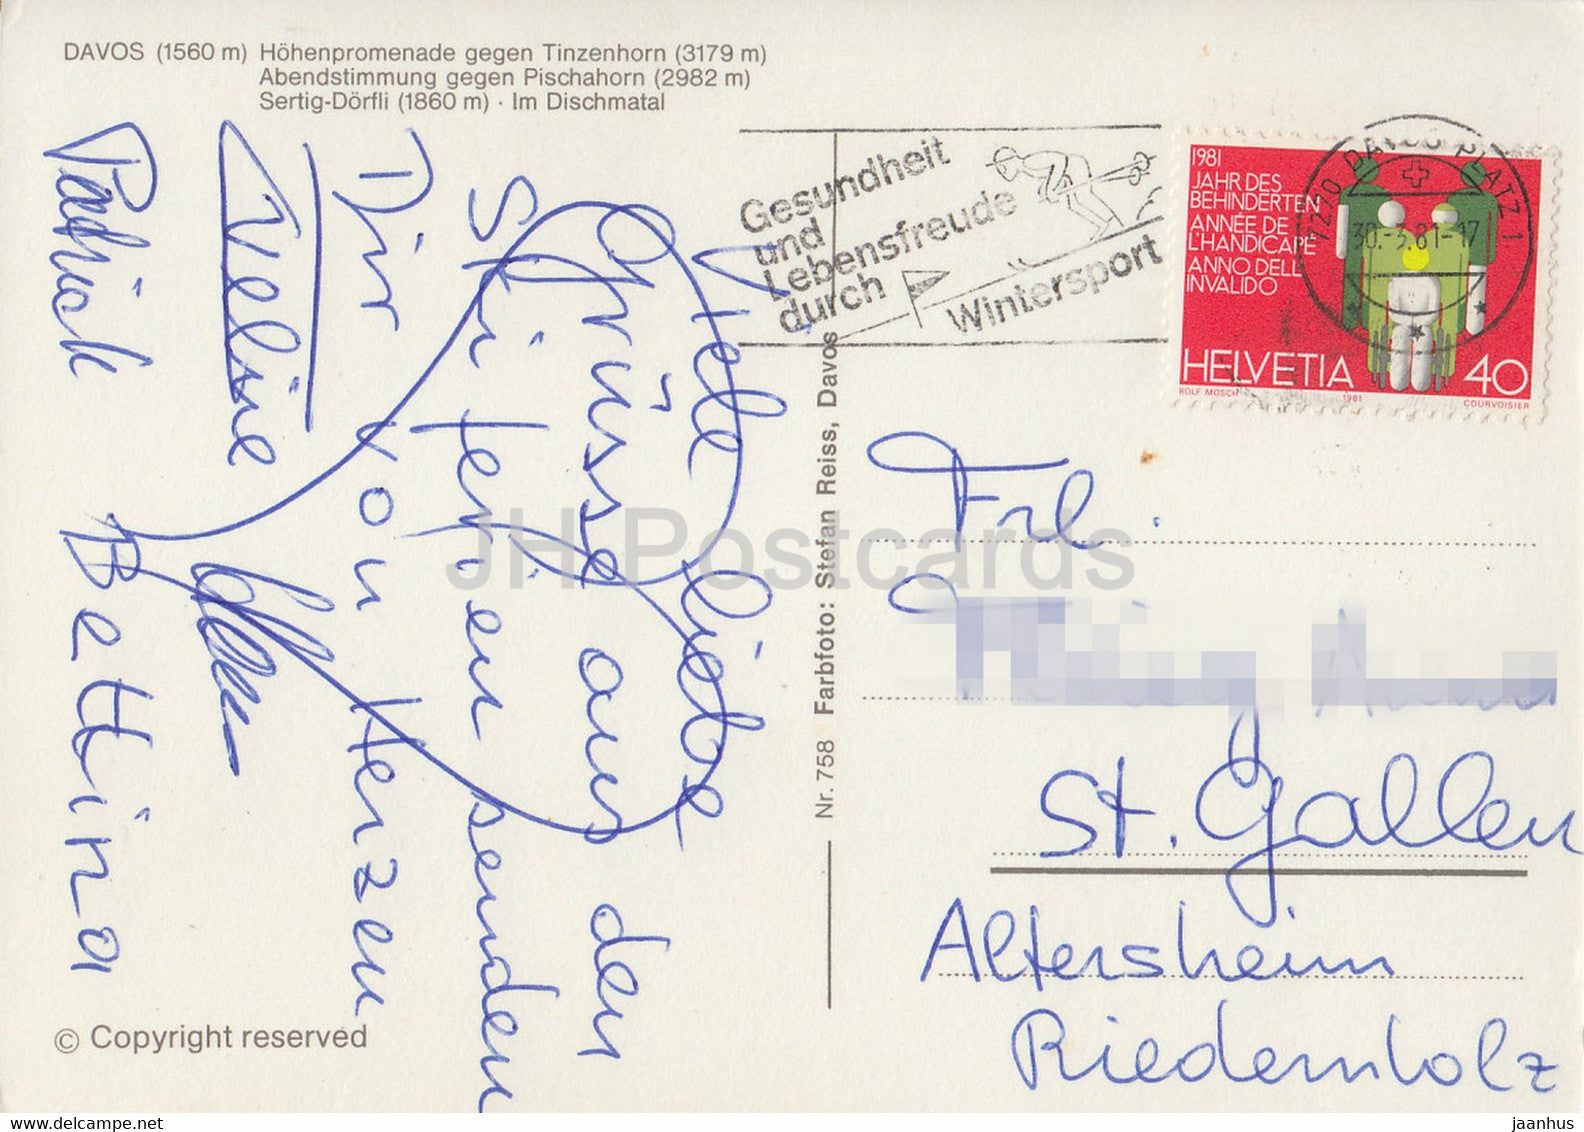 DAVOS (1560 m) Höhenpromenade gegen Tinzenhorn (3179 m)
Abendstimmung gegen Pischahorn (2982 m)
Sertig-Dörfli (1860 m) · Im Dischmatal
Gesundheit
und
Lebensfreude
durch
Wintersport
7270 DAVOS PLATZ 1
30.-3.81-17
1981
JAHR DES
BEHINDERTEN
ANNÉE DE
L'HANDICAPÉ
ANNO DELL'
INVALIDO
HELVETIA 40
ROLF MOSCH 1981 COURVOISIER
Viele liebe
Grüsse aus den
Skiferien senden
Dir von Herzen
Eveline
Patrick Bettina
Nr. 758 Farbfoto: Stefan Reiss, Davos
Frl.
St. Gallen
Altersheim
Riedernholz
© Copyright reserved
JH Postcards
www.delcampe.net
jaanhus